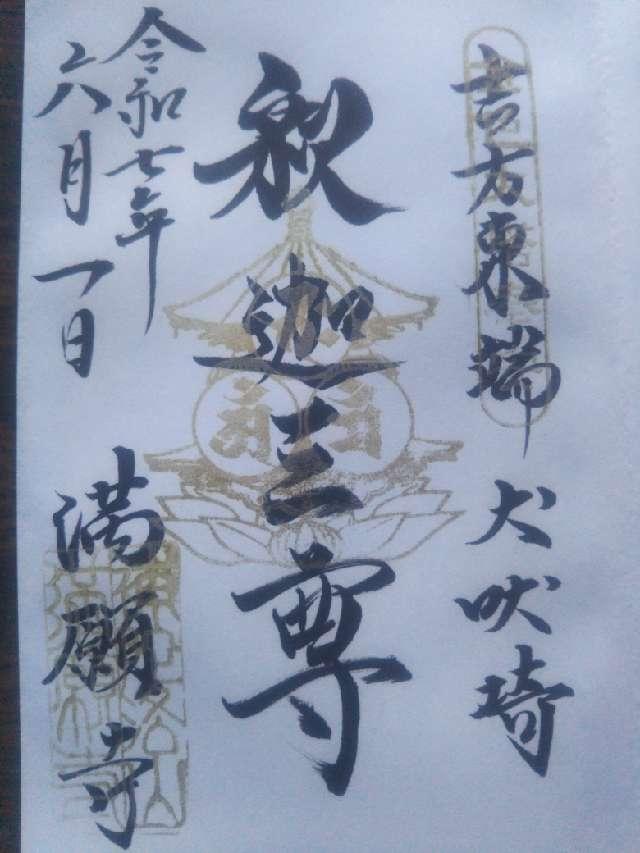 吉方東端 犬吠埼
釈迦三尊
令和七年
六月一日
満願寺